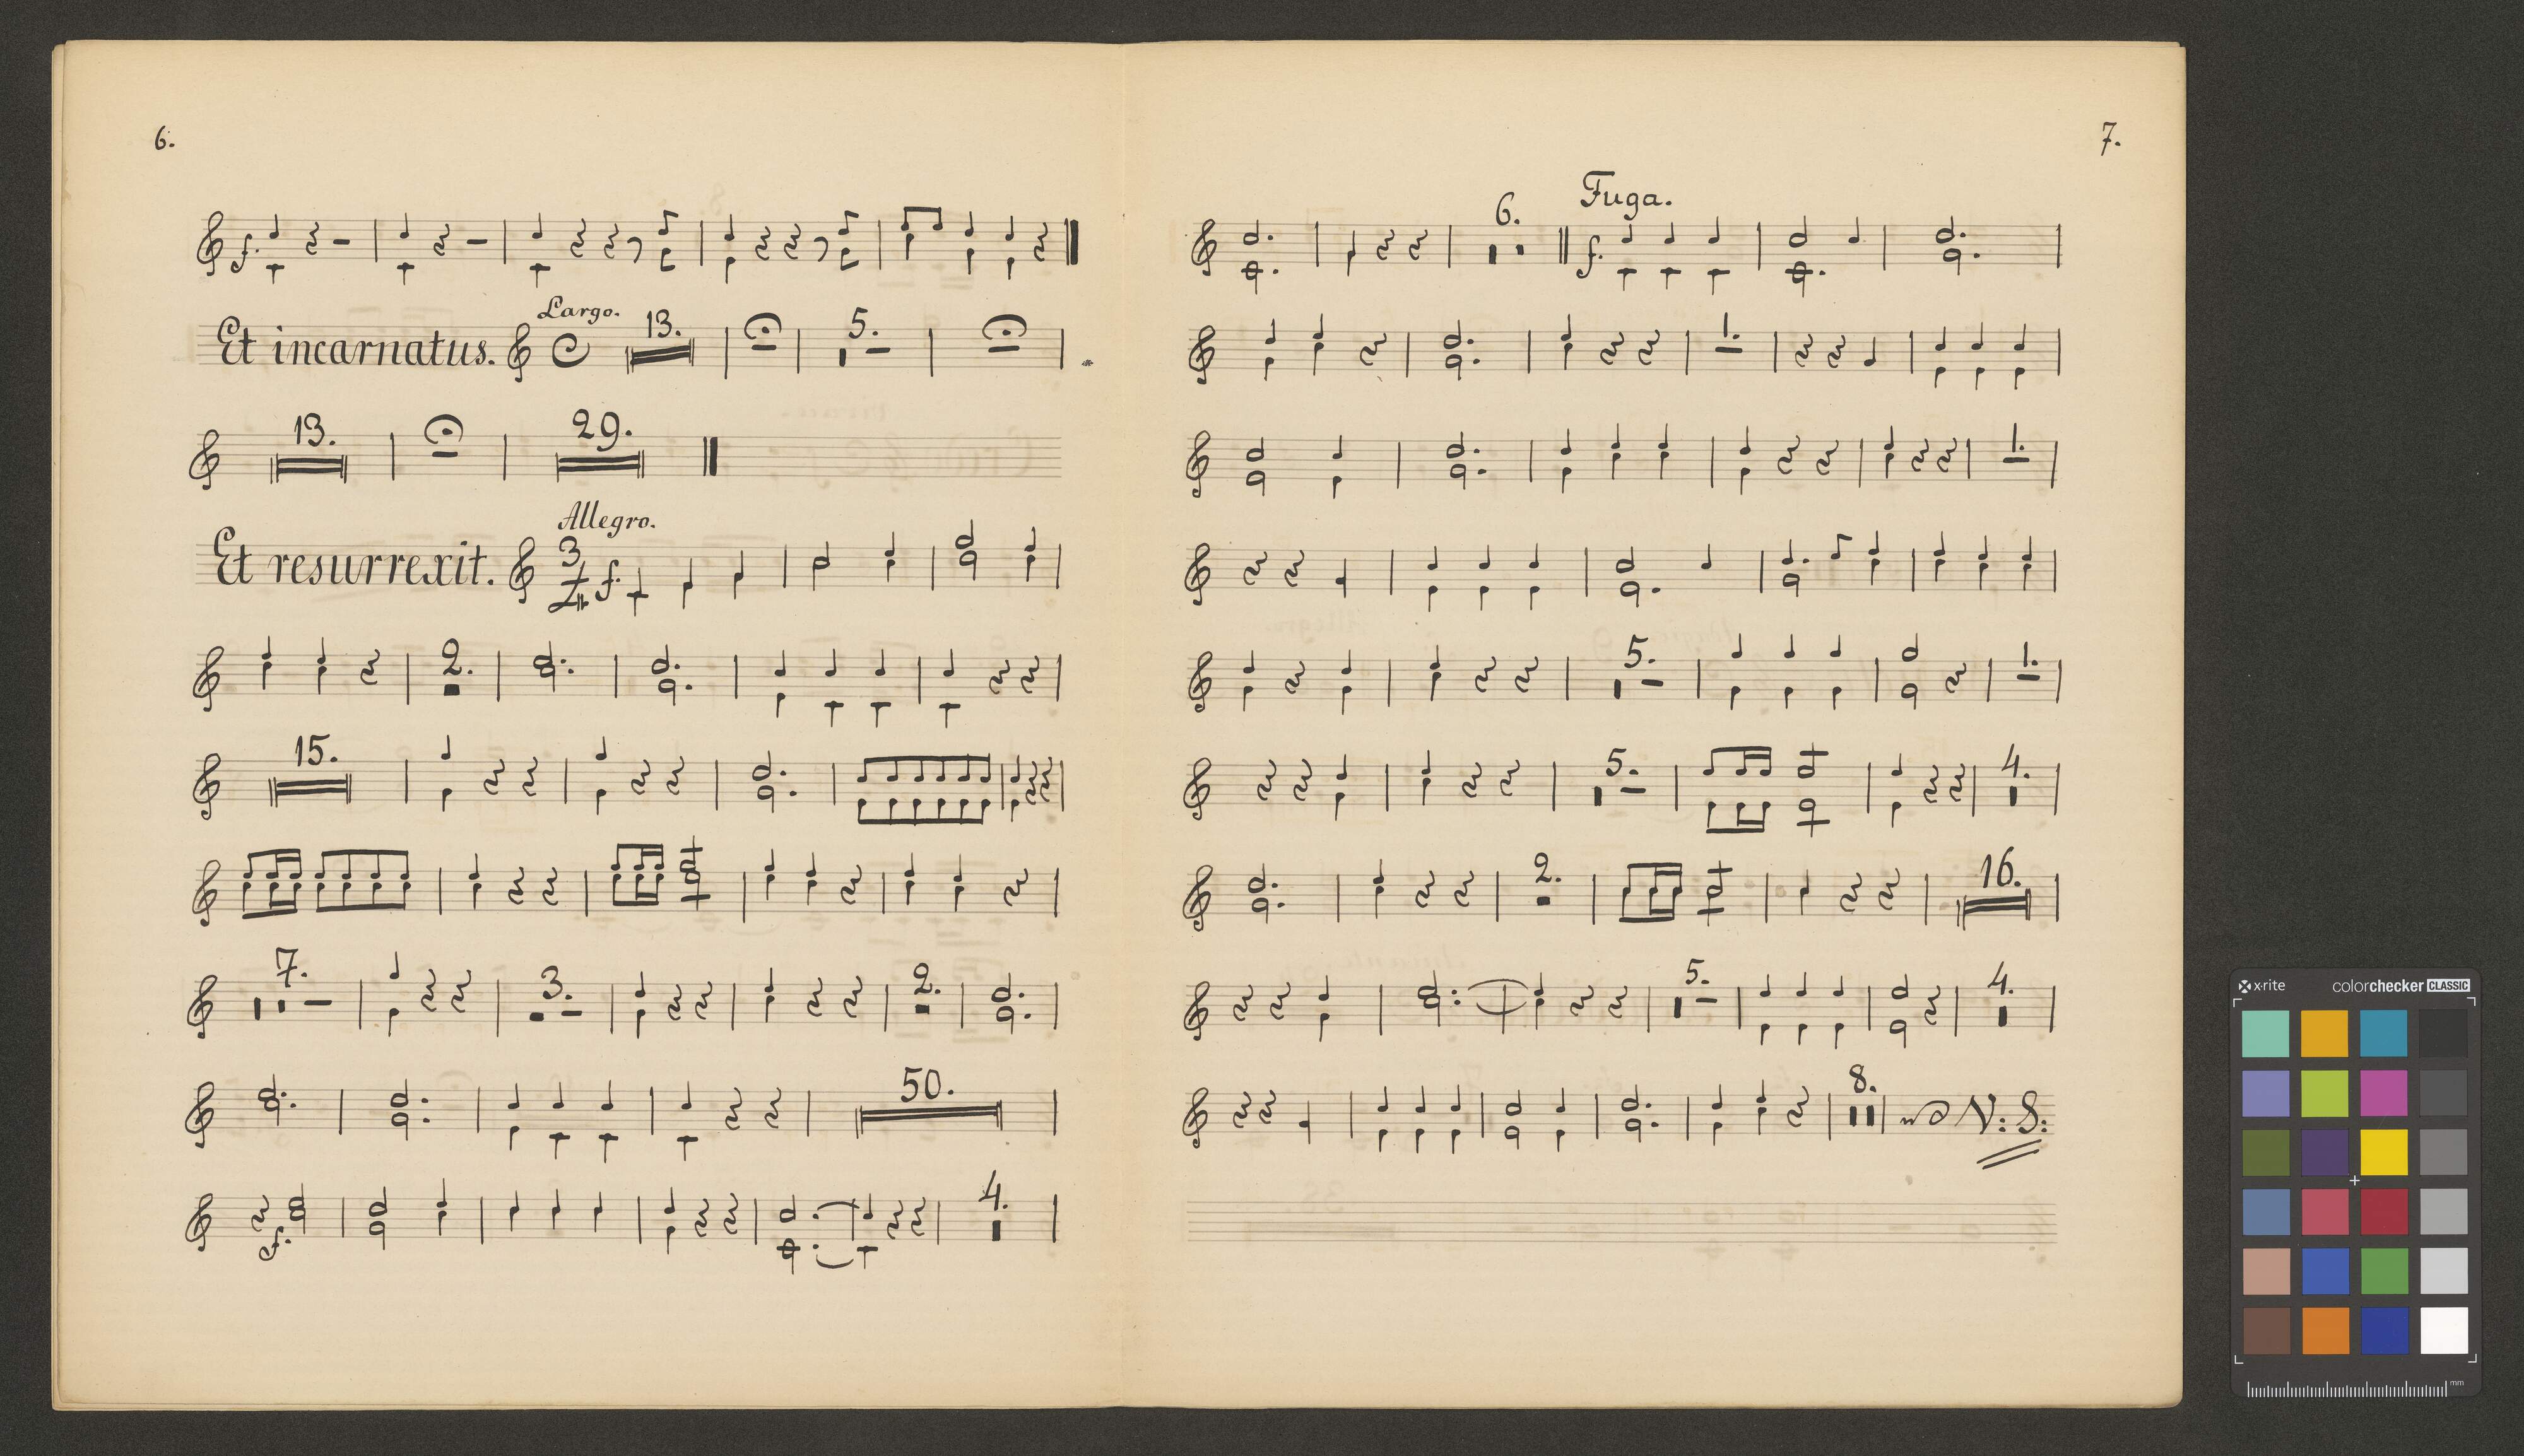 6.
f.
Largo.
Et incarnatus. 13. 5.
13. 29.
Allegro.
Et resurrexit. 3 4 f.
2.
15.
7. 3. 2.
50.
f. 4.
7.
6. Fuga.
f.
1.
1.
5. 1.
5. 4.
2. 16.
5. 4.
8. V: S:
x-rite colorchecker CLASSIC
mm